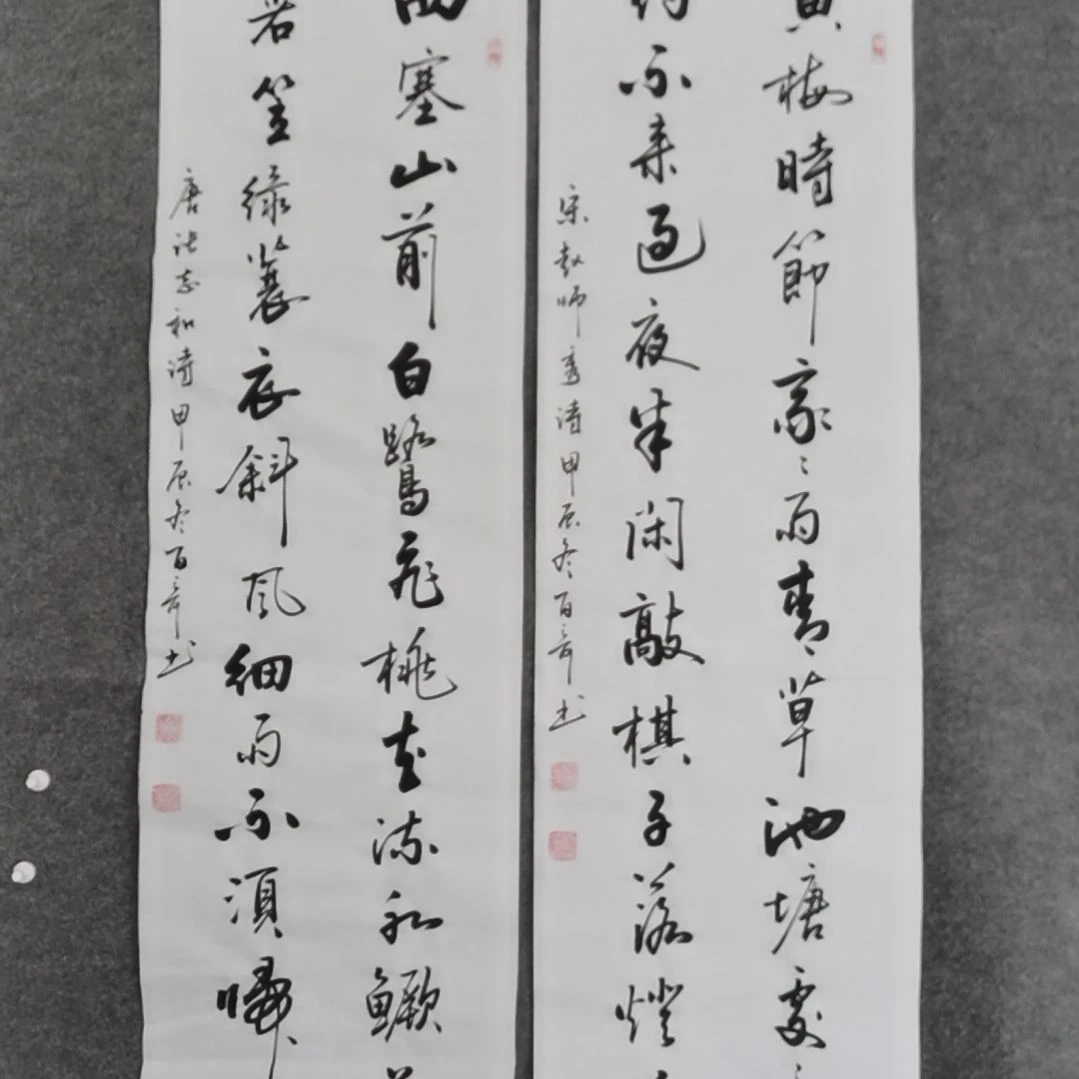 黄梅時節家々雨青草池塘處々
約不来過夜半閑敲棋子落燈
宋趙師秀詩甲辰冬百奇书
西塞山前白鷺飛桃花流水鱖
箬笠緑蓑衣斜風細雨不須歸
唐张志和詩甲辰冬百奇书